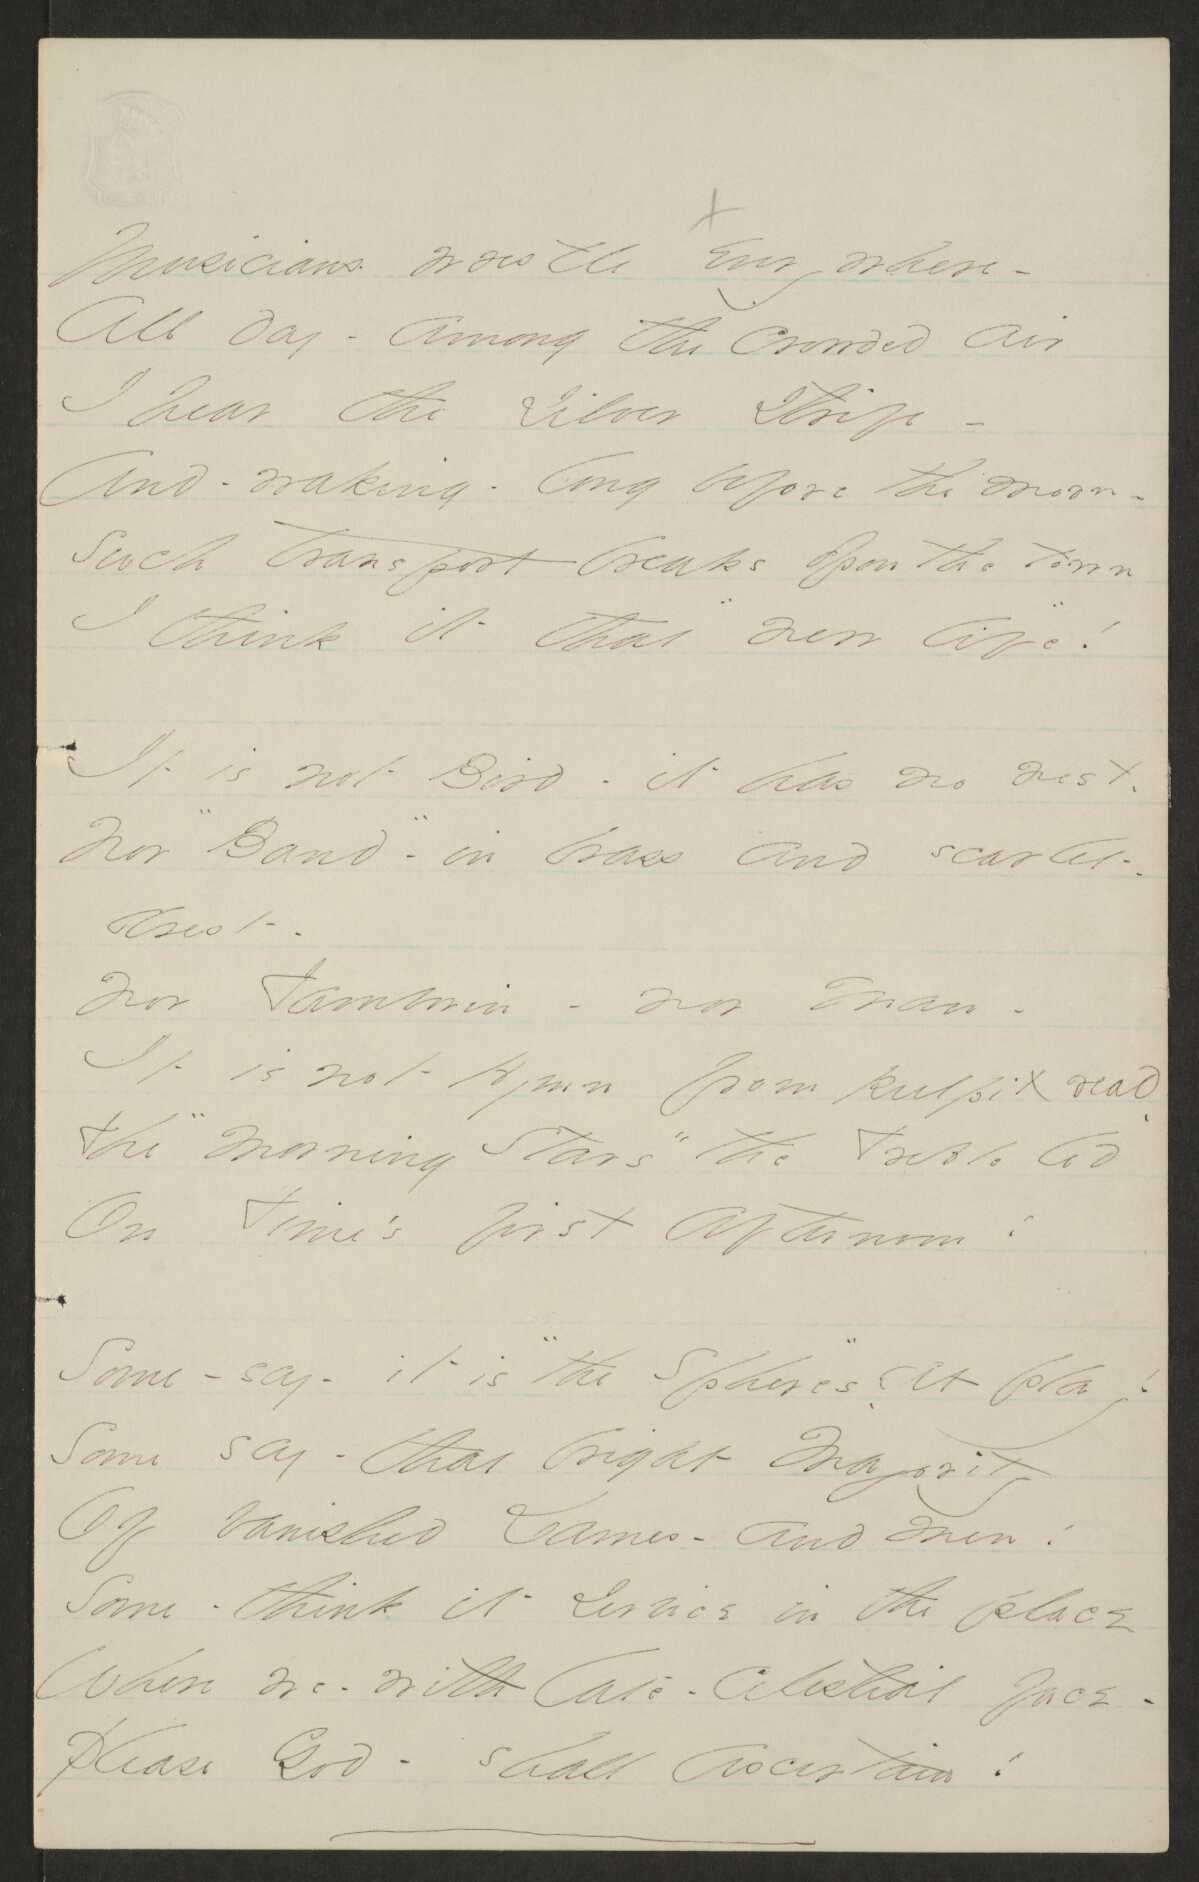 Musicians wrestle Everywhere -
All day - among the crowded air
I hear the silver strife -
And - waking - long before the morn -
Such transport breaks upon the town
I think it that "new life"!
It is not Bird - it has no nest -
Nor "Band" - in brass and scarlet -
drest -
Nor Tamborin - nor Man -
It is not Hymn from pulpit read -
The "Morning Stars" the Treble led
On Time's first afternoon!
Some - say - it is "the Spheres" - at play!
Some say - that bright Majority
Of vanished Dames - and Men!
Some - think it service in the place
Where we - with late - celestial face -
Please God - shall ascertain!